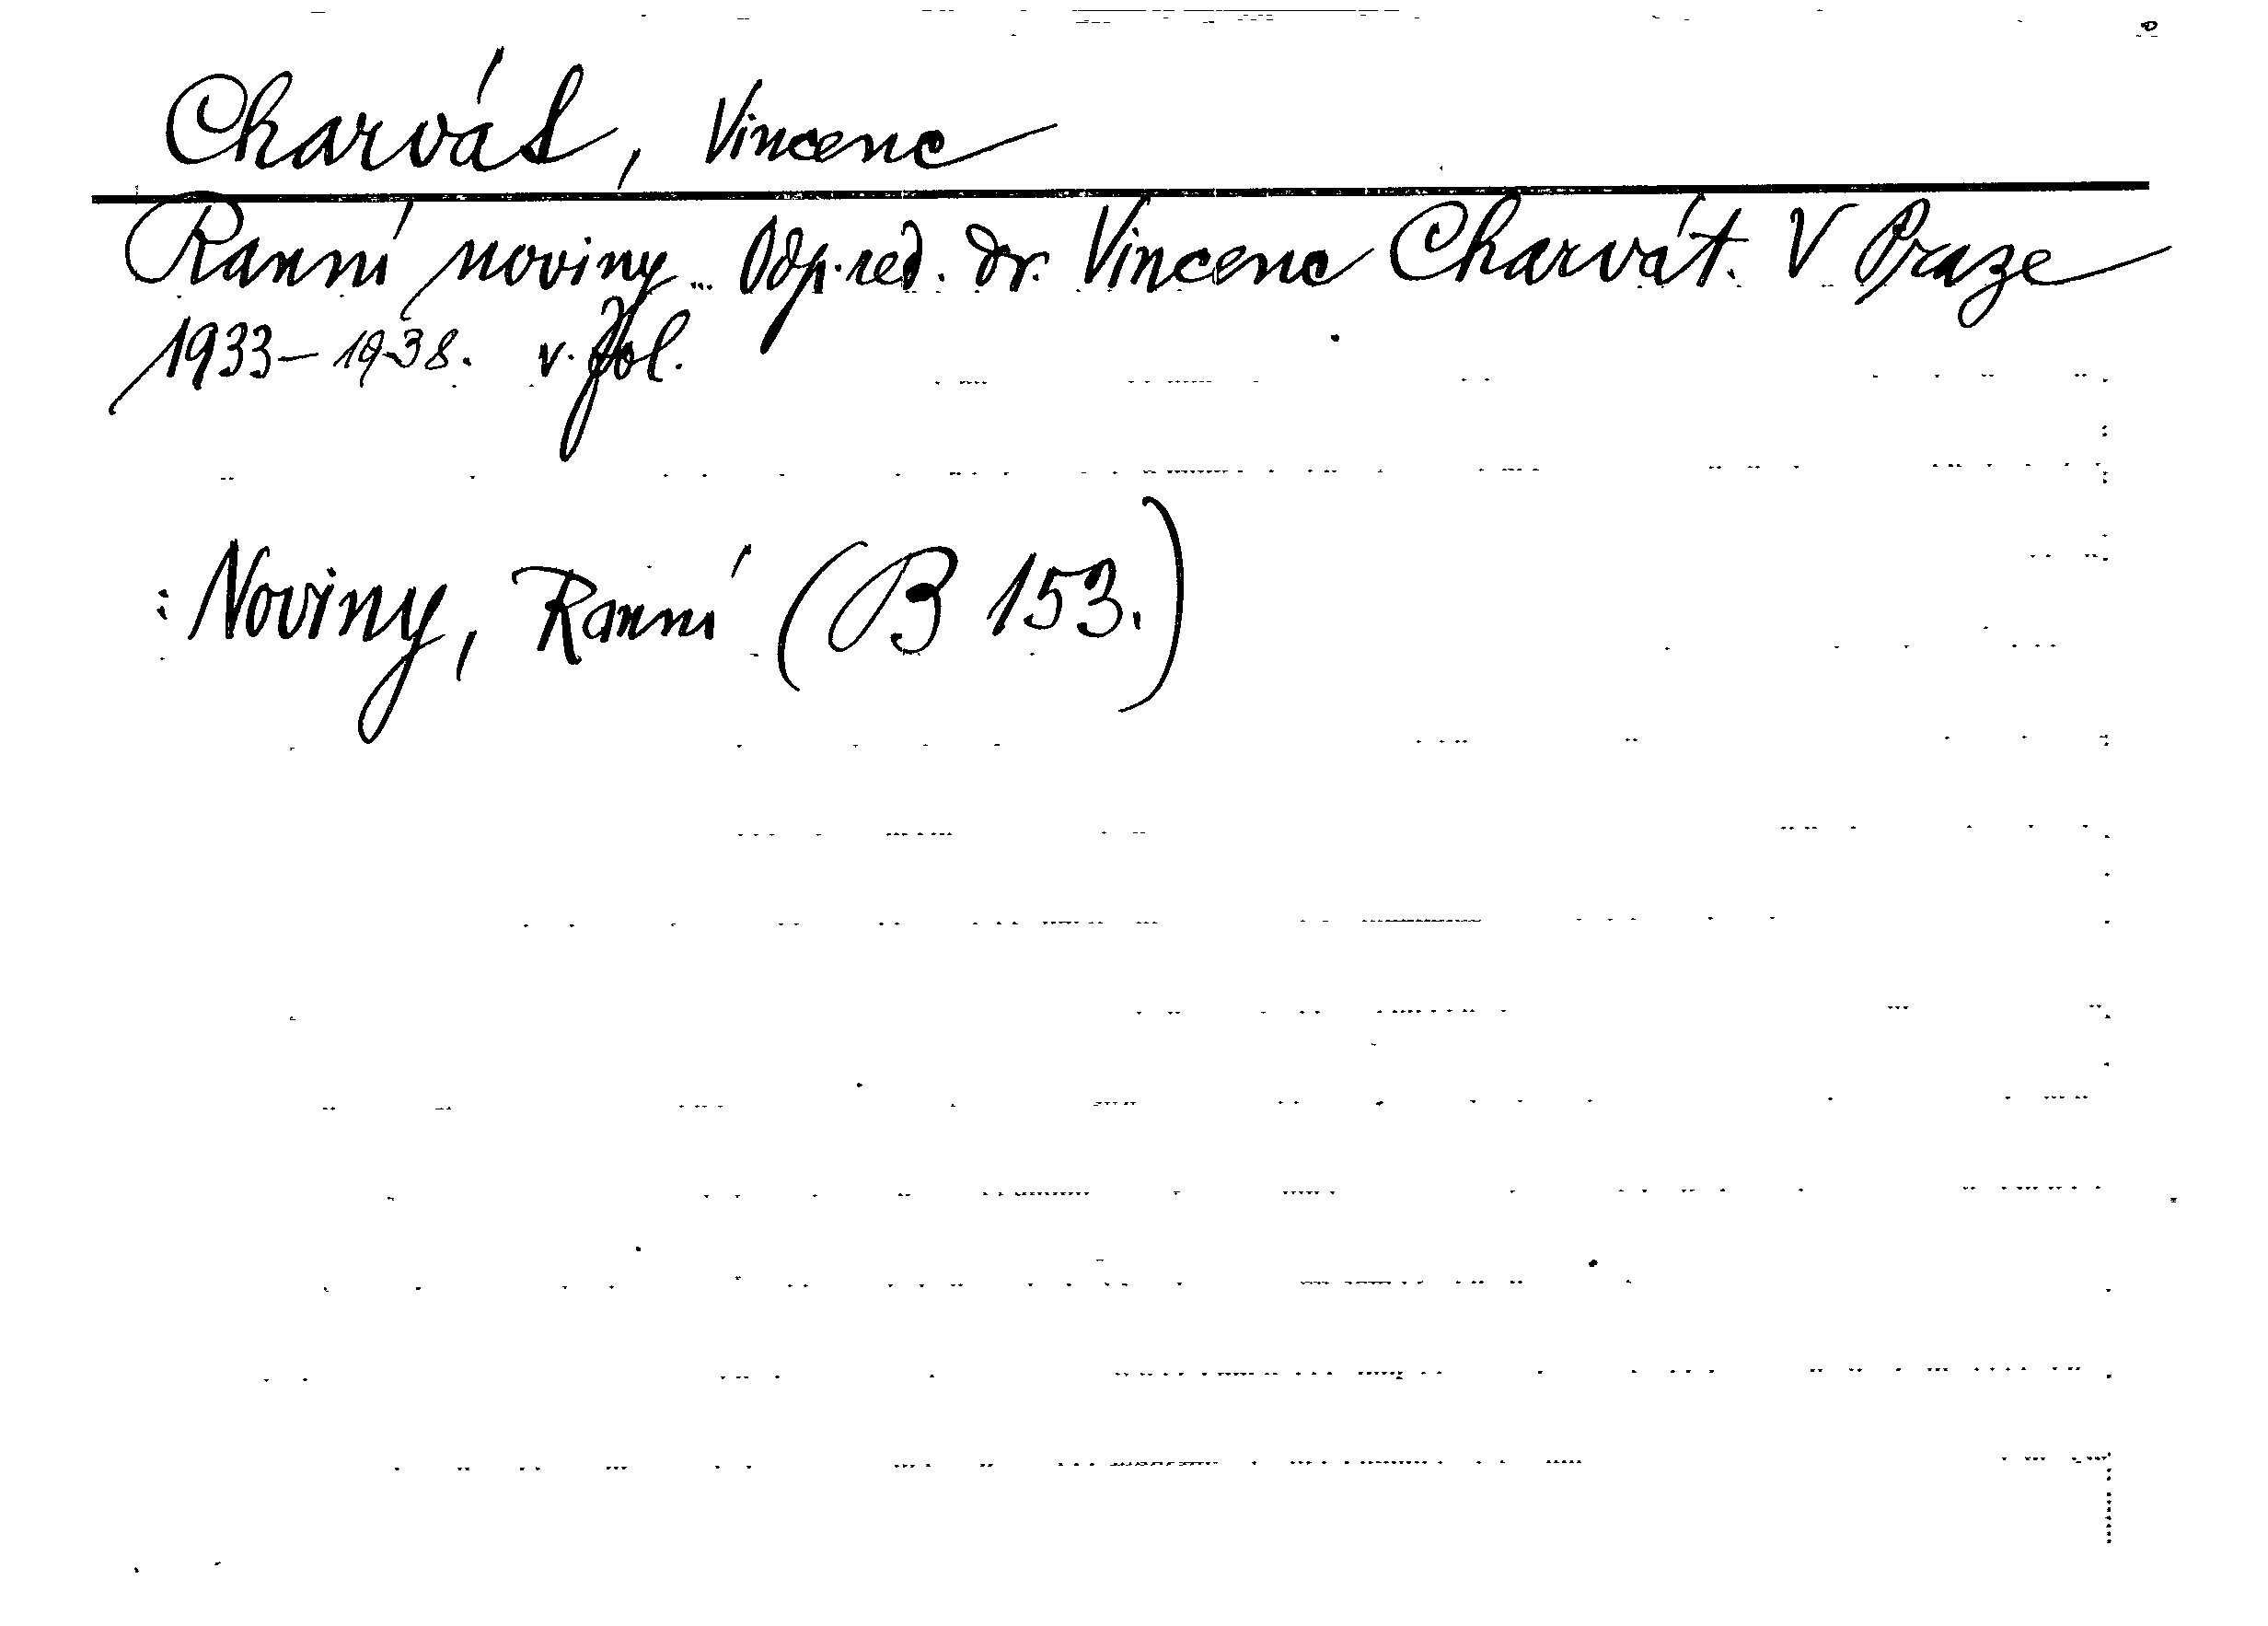 Charvát, Vincenc
Ranní noviny... Odp. red. dr. Vincenc Charvát. V Praze
1933-1938. v. fol.
: Noviny, Ranní (B 153.)